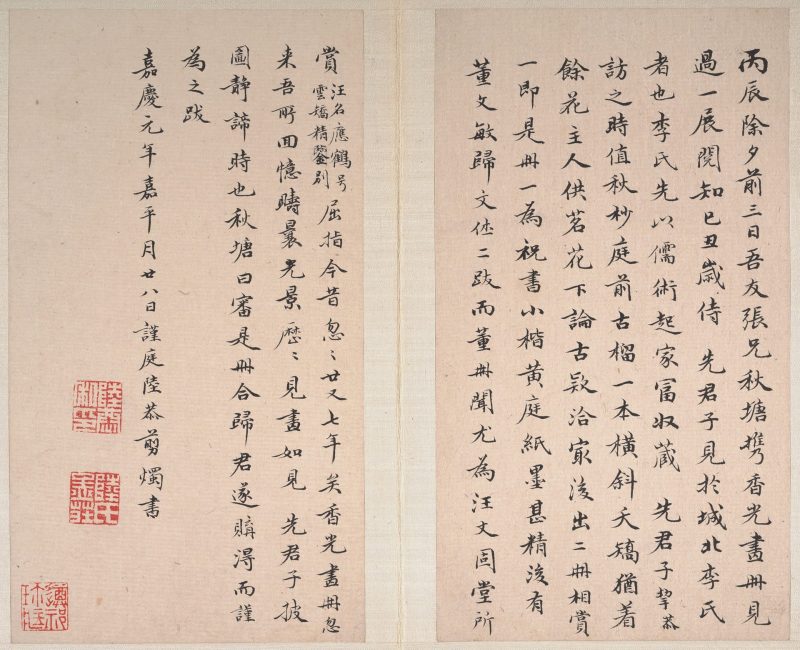 丙辰除夕前三日吾友張兄秋塘攜香光畫冊見
過一展閱知己丑歲侍 先君子見於城北李氏
者也李氏先以儒術起家富收藏 先君子挈恭
訪之時值秋杪庭前古榴一本橫斜夭矯猶着
餘花主人供茗花下論古款洽寂後出二冊相賞
一即是冊一為祝書小楷黃庭紙墨甚精後有
董文敏歸文休二跋而董冊聞尤為汪文固堂所
賞 汪名應鶴号雲矯精鑒别 屈指今昔忽〻廿又七年矣香光畫冊忽
来吾所回憶疇曩光景歷〻見畫如見 先君子披
圖静諦時也秋塘曰審是冊合歸君遂購得而謹
為之跋
嘉慶元年嘉平月廿八日謹庭陸恭剪燭書